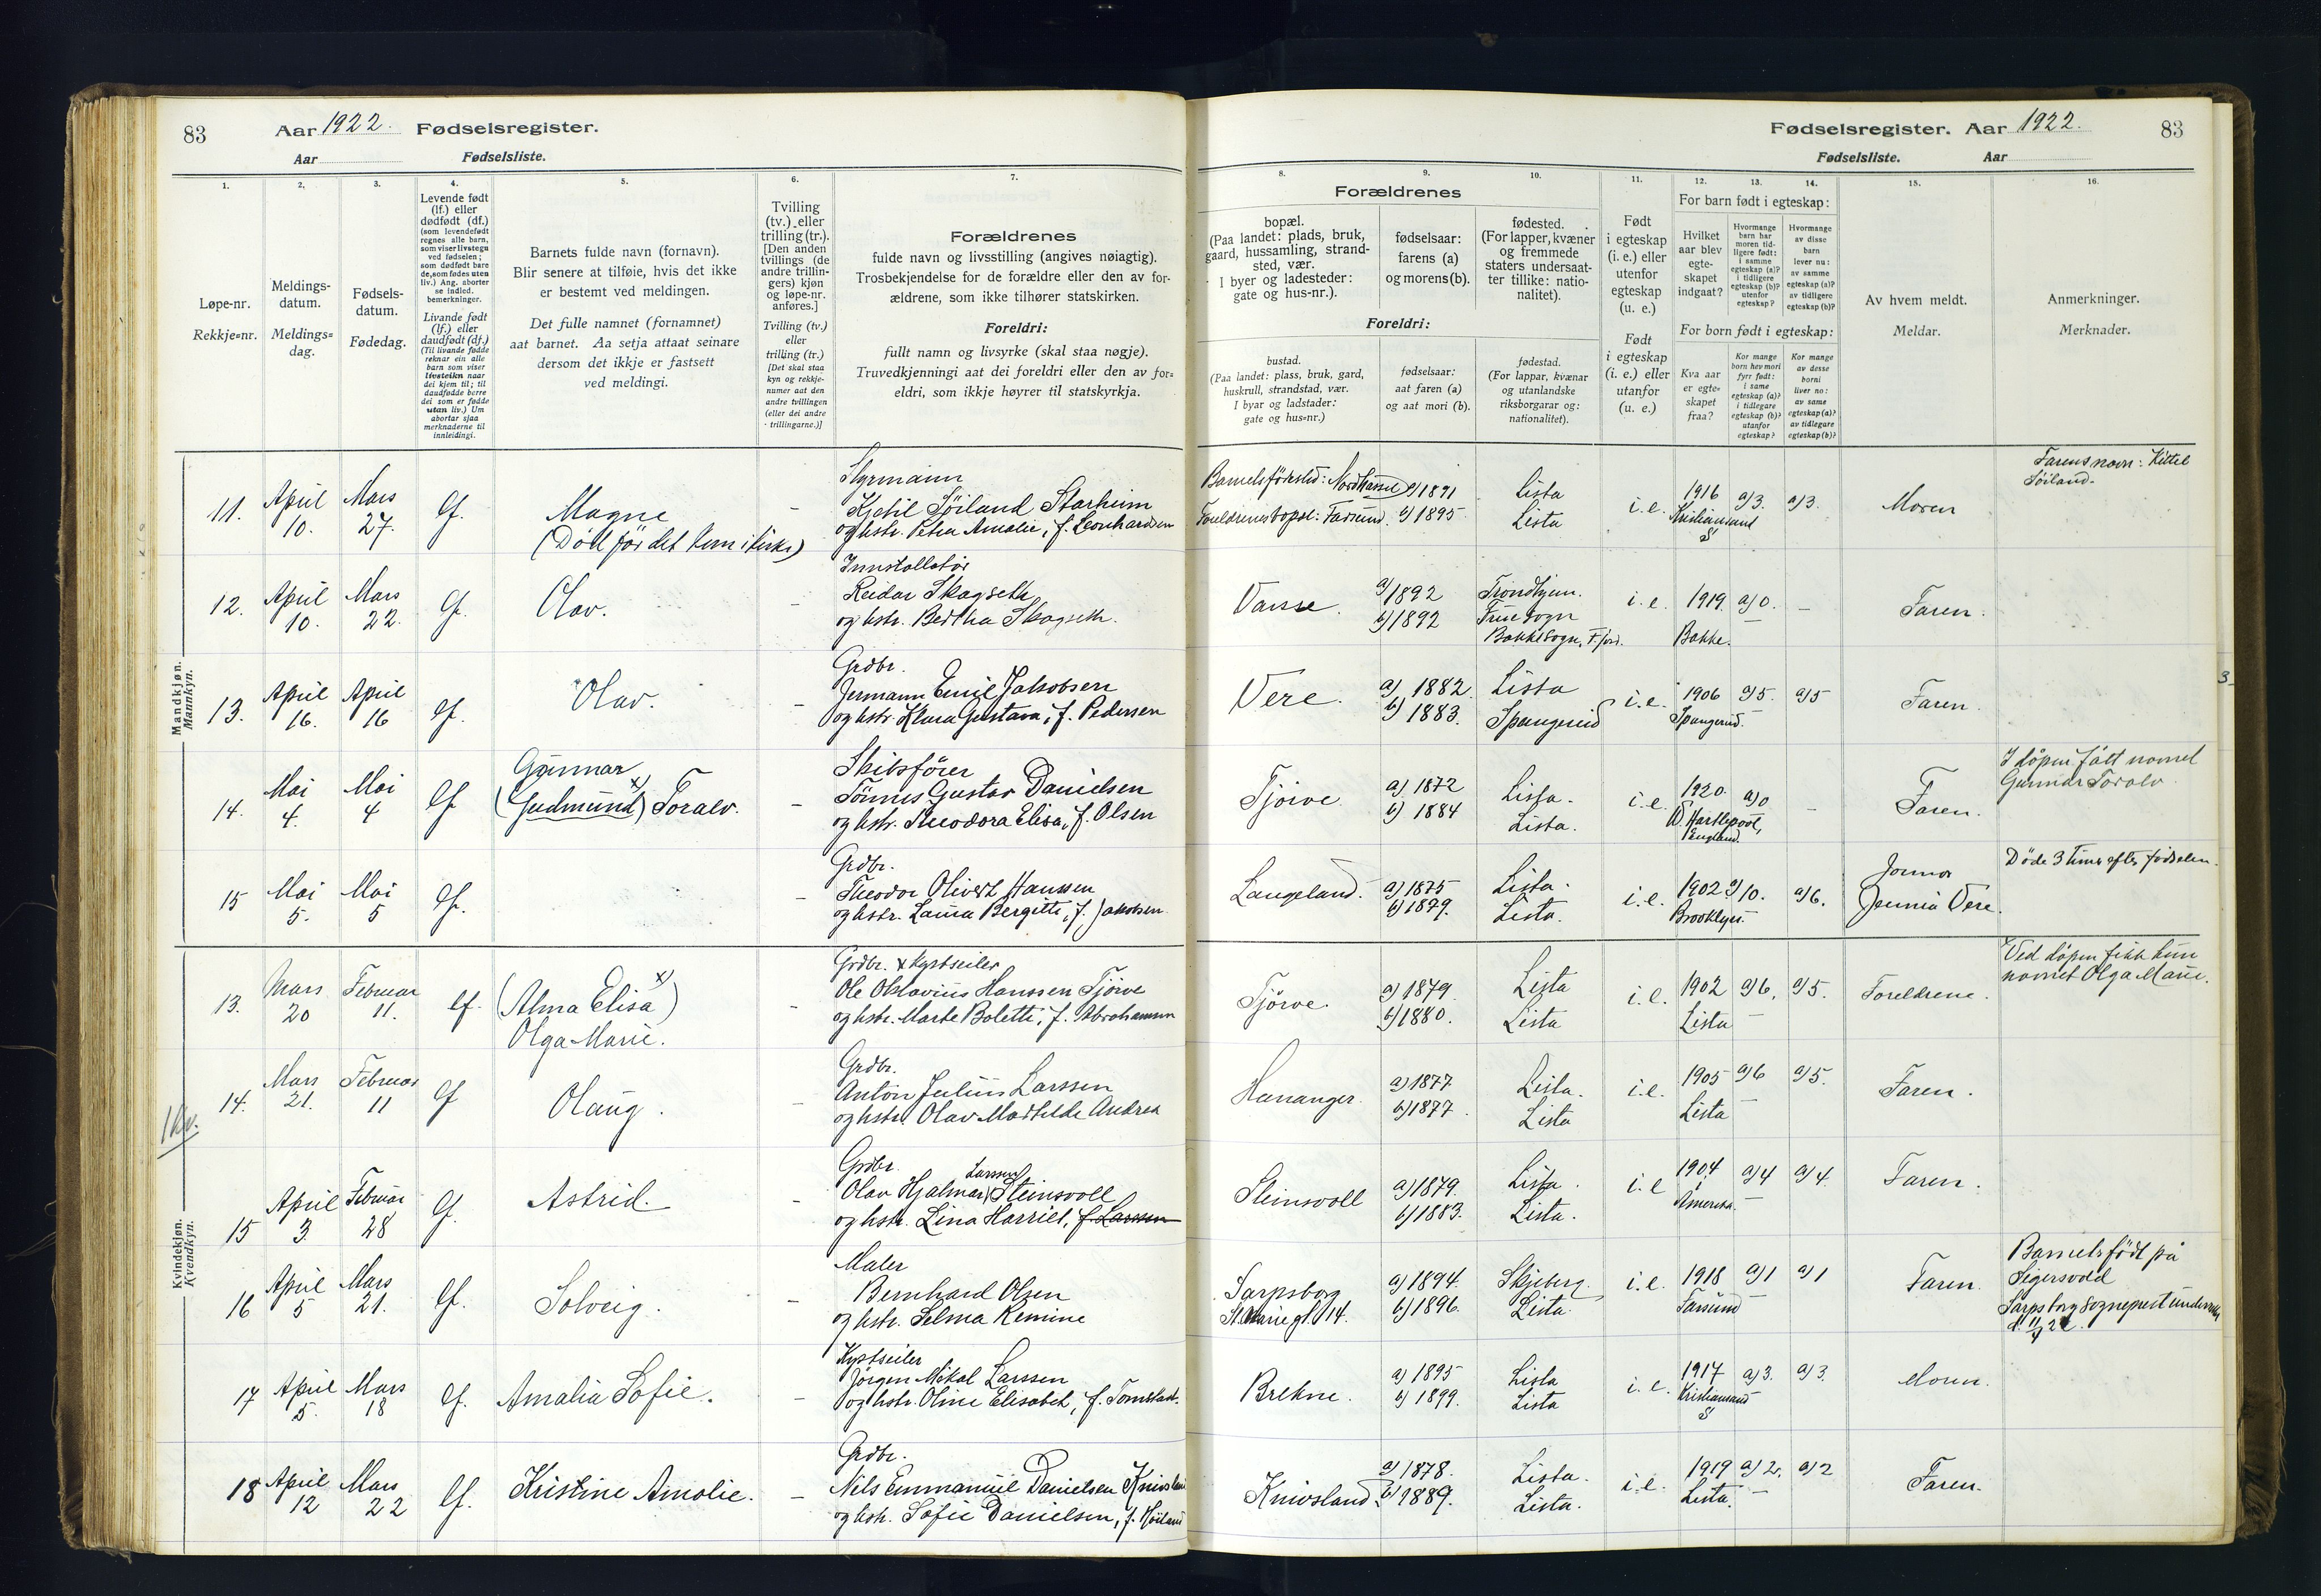 83 Aar 1922. Fødselsregister.
Aar Fødselsliste.
Fødselsregister. Aar 1922. 83
Fødselsliste. Aar
1.
Løpe-nr.
Rekkje=nr.
2.
Meldings-
datum.
Meldings=
dag.
3.
Fødsels-
datum.
Fødedag.
4.
Levende født
(lf.) eller
dødfødt (df.)
(som levendefødt
regnes alle barn,
som viser livstegn
ved fødselen;
som dødfødt bare
de, som fødes uten
liv.) Ang. aborter
se indled.
bemerkninger.
Livande født
(lf.) eller
daudfødt (df.)
(Til livande fødde
reknar ein alle
barn som viser
livsteikn naar
dei kjem til; til
daudfødde berre
dei som er fødde
utan liv.) Um
abortar sjaa
merknaderne til
innleidingi.
5.
Barnets fulde navn (fornavn).
Blir senere at tilføie, hvis det ikke
er bestemt ved meldingen.
Det fulle namnet (fornamnet)
aat barnet. Aa setja attaat seinare
dersom det ikkje er fastsett
ved meldingi.
6.
Tvilling
(tv.) eller
trilling (tr.).
[Den anden
tvillings (de
andre trillin-
gers) kjøn
og løpe-nr.
anføres.]
Tvilling (tv.)
eller
trilling (tr.)
[Det skal staa
kyn og rekkje-
numer aat den
andre tvillingen
(eller dei andre
trillingarne.)]
7.
Forældrenes
fulde navn og livsstilling (angives nøiagtig).
Trosbekjendelse for de forældre eller den av for-
ældrene, som ikke tilhører statskirken.
Foreldri:
fullt namn og livsyrke (skal staa nøgje).
Truvedkjenningi aat dei foreldri eller den av for=
eldri, som ikkje høyrer til statskyrkja.
Forældrenes
8.
bopæl.
(Paa landet: plads, bruk,
gaard, hussamling, strand-
sted, vær.
I byer og ladesteder:
gate og hus-nr.).
9.
fødselsaar:
farens (a)
og morens (b).
10.
fødested.
(For lapper, kvæner
og fremmede
staters undersaat-
ter tillike: natio-
nalitet).
Foreldri:
bustad.
(Paa landet: plass, bruk, gard,
huskrull, strandstad, vær.
I byar og ladstader:
gate og hus=nr.)
fødselsaar:
aat faren (a)
og aat mori (b).
fødestad.
(For lappar, kvænar
og utanlandske
riksborgarar og:
nationalitet).
11.
Født
i egteskap
(i. e.) eller
utenfor
egteskap
(u. e.)
Født
i egteskap
(i. e.) eller
utanfor
(u. e.)
For barn født i egteskap:
12.
Hvilket
aar blev
egte-
skapet
indgaat?
13.
Hvormange
barn har
moren tid-
ligere født:
i samme
egteskap (a)?
i tidligere
egteskap (b)?
utenfor
egteskap?
14.
Hvormange
av disse
barn
lever nu:
av samme
egteskap (a)?
av tidligere
egteskap (b)?
For born født i egteskap:
Kva aar
er egte-
skapet
fraa?
Kor mange
born hev mori
fyrr født:
i same
egteskap (a)?
i tidlegare
egteskap (b)?
utanfor
egteskap?
Kor mange
av desse
borni
liver no:
av same
egteskap (a)?
av tidlegare
egteskap (b)?
15.
Av hvem meldt.
Meldar.
16.
Anmerkninger.
Merknader.
Mandkjøn.
Mannkyn.
11. April 10. Mars 27. lf. Magne
(Död för det kom i kirke)
-
Styrmann
Kjetil Sörland Starheim
og hstr. Petra Amalie, f. Leonhardsen
Barnets födested: Nordhassel
Foreldrenes bopæl: Farsund.
a) 1891
b) 1895
Lista
Lista
i. e. 1916
Kristiansand
S
a) 3. a) 3. Moren
Farens navn: Kittel
Söiland.
12. April 10. Mars 22. lf. Olav.
-
Innstallatör
Reidar Skogseth
og hstr. Bertha Skogseth.
Vanse.
a) 1892
b) 1892
Trondhjem.
Frue sogn
Bakke sogn, F.fjord.
i. e. 1919.
Bakke.
a) 0. - Faren.
13. April 16. April 16 lf. Olav.
-
Grdbr.
Jermann Emil Jakobsen
og hstr. Klara Gustava, f. Pedersen
Vere.
a) 1882.
b) 1883.
Lista
Spangereid
i. e. 1906
Spangereid.
a) 5. a) 5 Faren.
14. Mai 4. Mai 4 lf
Gunnar
(Gudmund x)) Toralv.
-
Skibsförer
Tönnes Gustav Danielsen
og hstr. Theodora Elisa, f. Olsen
Tjörve
a) 1872
b) 1884
Lista.
Lista.
i. e. 1920.
W. Hartlepool,
England.
a) 0 - Faren.
I dåpen fått navnet
Gunnar Toralv.
15 Mai 5. Mai 5 lf.
-
Grdbr.
Theodor Olivert Hanssen
og hstr. Laura Bergitte, f. Jakobsen.
Langeland.
a) 1875
b) 1879.
Lista.
Lista.
i. e. 1902
Brooklyn.
a) 10. a) 6.
Jormor
Jennia Vere.
Döde 3 timer efter födselen.
Kvindekjøn.
Kvendkyn.
13. Mars 20 Februar 11. lf.
(Alma Elisa x))
Olga Marie.
-
Grdbr. & Kystseiler
Ole Oktavius Hanssen Tjörve
og hstr. Marte Bolette, f. Abrahamsen
Tjörve.
a) 1879.
b) 1880.
Lista
Lista
i. e. 1902
Lista
a) 6. a) 5. Foreldrene.
Ved dåpen fikk hun
navnet Olga Marie.
14. Mars 21. Februar 11 lf Olaug.
-
Grdbr.
Anton Julius Larssen
og hstr. Olava Mathilde Andrea
Hananger.
a) 1877
b) 1877.
Lista.
Lista
i. e. 1905
Lista
a) 6 a) 5. Faren.
1 kv.
15 April 3. Februar 28 lf. Astrid.
-
Grdbr.
Larssen
Olav Hjalmar Steinsvoll
og hstr. Lina Harriet, f. Larssen
Steinsvoll
a) 1879.
b) 1883.
Lista.
Lista.
i. e 1904
i
Amerika.
a) 4 a) 4. Faren.
16 April 5 Mars 21. lf. Solveig.
-
Maler
Bernhard Olsen
og hstr. Selma Remine
Sarpsborg
St. Mariegt. 14.
a) 1894.
b) 1896.
Skjeberg.
Lista.
i. e. 1918
Farsund
a) 1 a) 1 Faren.
Barnet födt på
Sigersvold
Sarpsborg sogneprest underrettet
17 April 5. Mars 18 lf. Amalia Sofie.
-
Kystseiler
Jörgen Mikal Larssen
og hstr. Oline Elisabet, f. Tomstad.
Brekne.
a) 1895
b) 1899.
Lista
Lista
i. e. 1917
Kristiansand
S
a) 3. a) 3. Moren.
18 April 12 Mars 22 lf. Kristine Amalie.
-
Grdbr.
Nils Emmanuel Danielsen Knivsland
og hstr. Sofie Danielsen, f. Höiland
Knivsland.
a) 1878.
b) 1889.
Lista.
Lista.
i. e. 1919
Lista.
a) 2. a) 2 Faren.